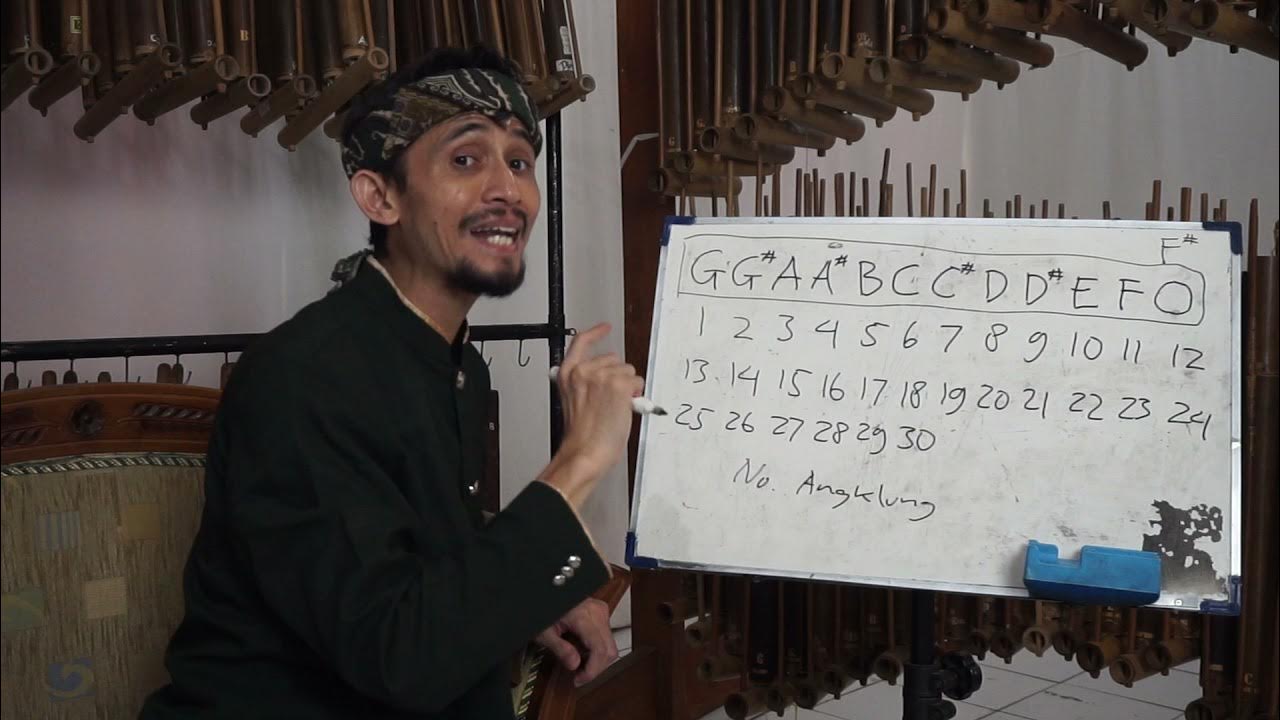 F#
G G# A A# B C C# D D# E F O
1 2 3 4 5 6 7 8 9 10 11 12
13 14 15 16 17 18 19 20 21 22 23 24
25 26 27 28 29 30
No. Angklung